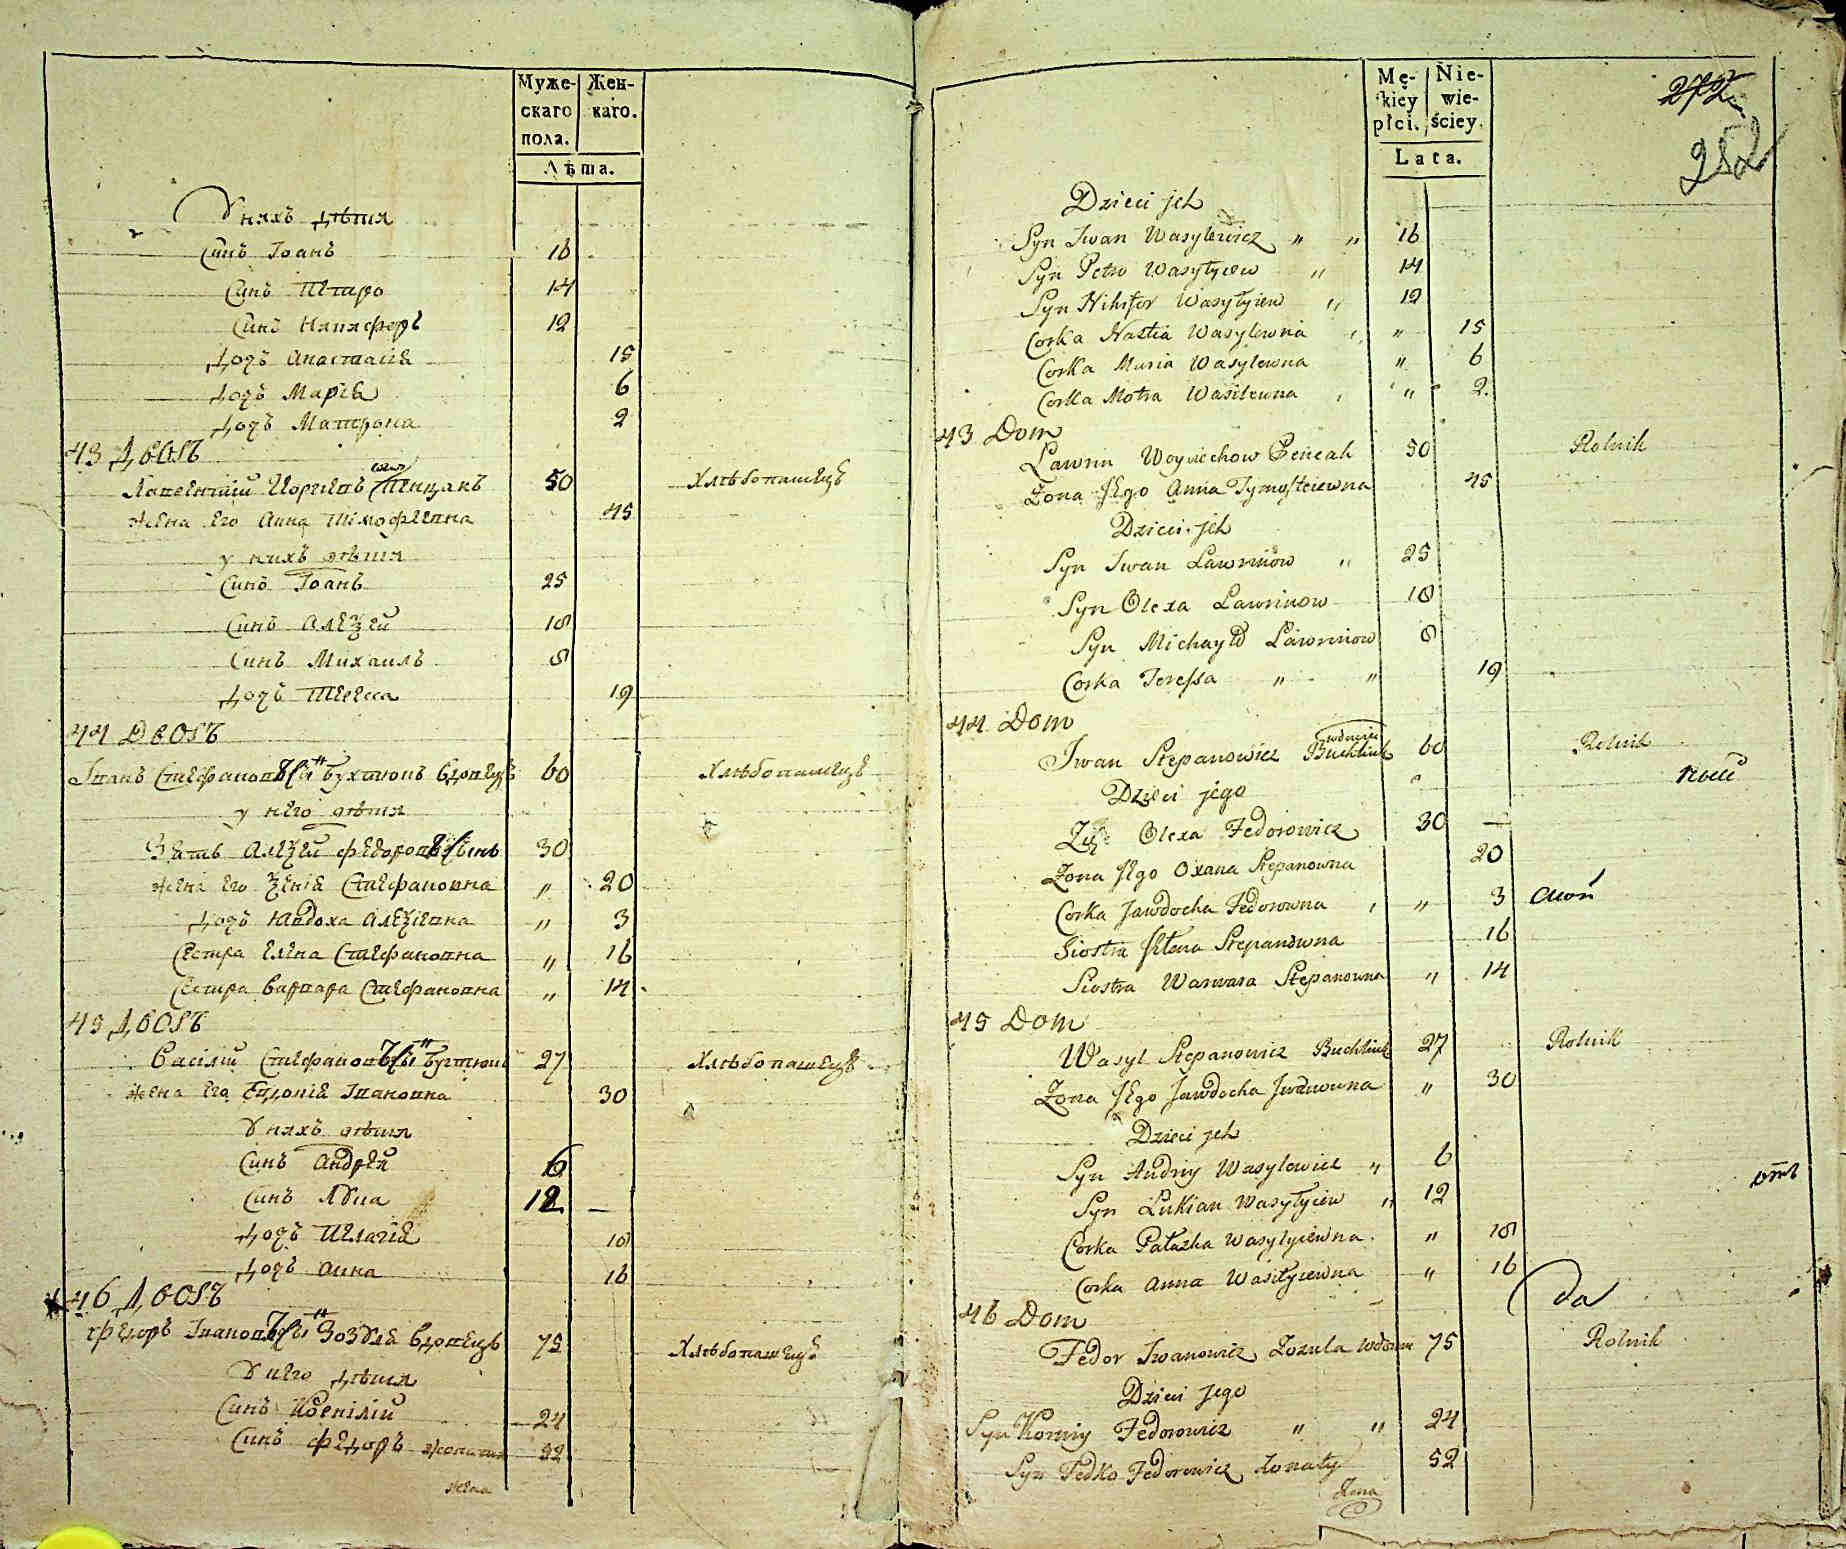 Муже-
скаго
пола.
Жен-
каго.
Лѣта.
У нихъ дѣти
Синъ Іоанъ 16
Синъ Петро 14
Синъ Никифоръ 12
Дочъ Анастасіѧ 15
Дочъ Маріѧ 6
Дочъ Матрона 2
43 Дворъ
50 Хлѣбопашецъ
жена его Анна Тімофеевна 45
у нихъ дѣти
Синъ Іоанъ 25
Синъ Алеѯей 18
Синъ Михаилъ 8
Дочъ Тересса 19
44 Дворъ
Іванъ Стефановъ Бухтюкъ вдовецъ 60 Хлѣбопашецъ
у него дѣти
Зять Алеѯей Федоровъ 30
жена его Ѯеніѧ Стефановна „ 20
Дочъ Явдоха Алеѯіевна „ 3
Сестра Елена Стефановна „ 16
Сестра Варвара Стефановна „ 14
45 Дворъ
Василій Стефановъ Бухтюкъ 27 Хлѣбопашецъ
жена его Евдокіѧ Івановна 30
У нихъ дѣти
Синъ Андрей 6
Синъ Лука 12 —
Дочъ Пелагіѧ 18
Дочъ Анна 16
46 Дворъ
Федоръ Івановъ Зозулѧ вдовецъ 75 Хлѣбопашецъ
У него дѣти
Синъ Корнілій 24
Синъ Федоръ жонатий 52
жена
Mę-
kiey
płci.
Nie-
wie-
ściey.
Lata.
272
252
Dzieci jch
Syn Iwan Wasylewicz „ „ 16
Syn Petro Wasyłyiew „ 14
Syn Nikifor Wasyłyiew „ 12
Corka Nastia Wasylewna „ „ 15
Corka Maria Wasylewna „ 6
Corka Motra Wasilewna „ „ 2
43 Dom
Lawrin Woyciechow Pencak 50 Rolnik
Żona JEgo Anna Tymofteiewna 45
Dzieci jch
Syn Iwan Lawrinow „ 25
Syn Olexa Lawrinow 18
Syn Michayło Lawrinow 8
Corka Teressa „ „ 19
44 Dom
wdowiec
Iwan Stepanowicz Buchtiuk 60 Rolnik
Dzieci jego
Zięć Olexa Fedorowicz 30 —
Żona JEgo Oxana Stepanowna 20
Corka Jawdocha Fedorowna „ „ 3
Siostra JElena Stepanowna 16
Siostra Warwara Stepanowna „ 14
45 Dom
Wasyl Stepanowicz Buchtiuk 27 Rolnik
Żona JEgo Jawdocha Jwanowna „ 30
Dzieci jch
Syn Andriy Wasylewicz „ 6
Syn Lukian Wasyłyiew „ 12
Corka Pałazka Wasyłyiewna „ 18
Corka Anna Wasiłyiewna „ 16
да
46 Dom
Fedor Iwanowicz Zozula wdowiec 75 Rolnik
Dzieci Jego
Syn Korniy Fedorowicz „ „ 24
Syn Fedko Fedorowicz żonaty 52
Żona